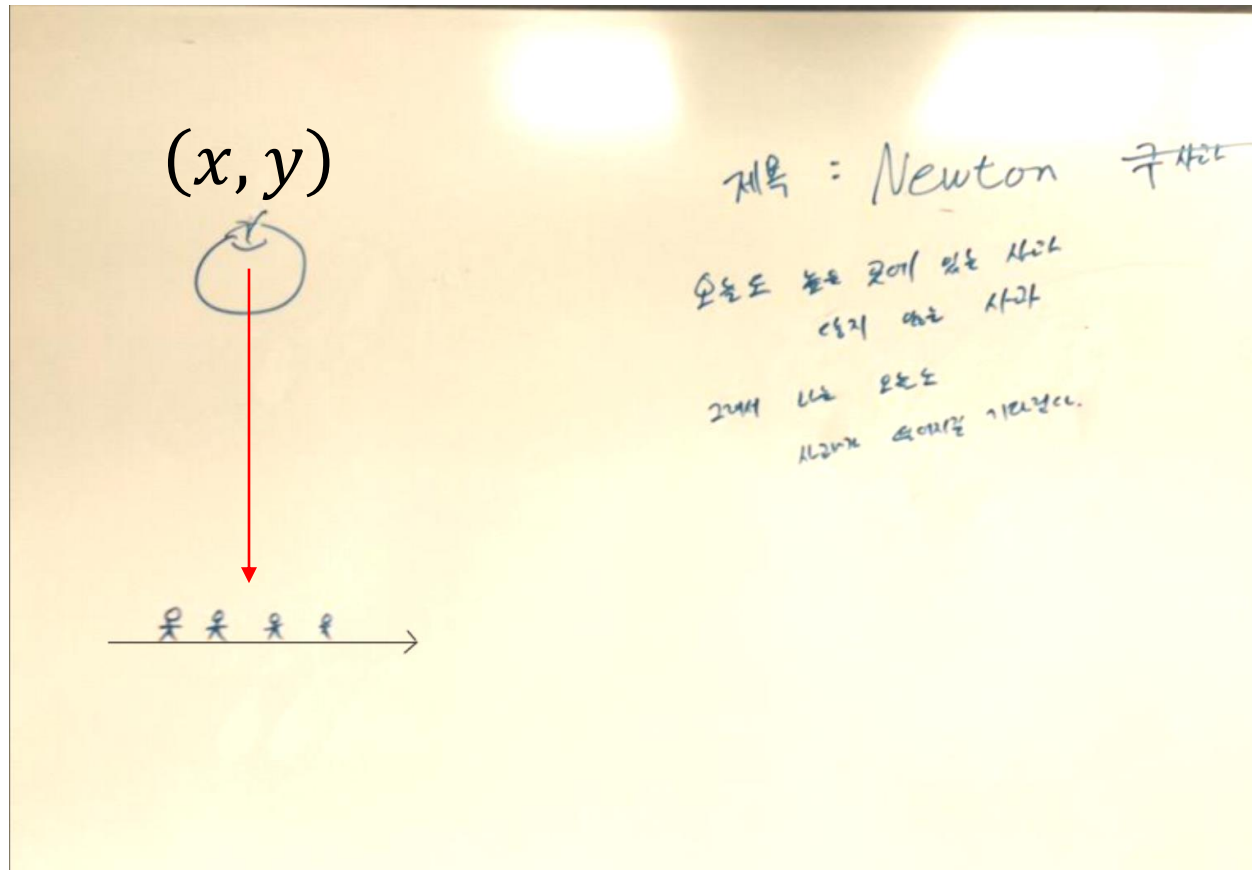 (x, y)
제목 : Newton 구 사과
오늘도 높은 곳에 있는 사과
닿지 않는 사과
그래서 나는 오늘도
사과가 떨어지길 기다린다.